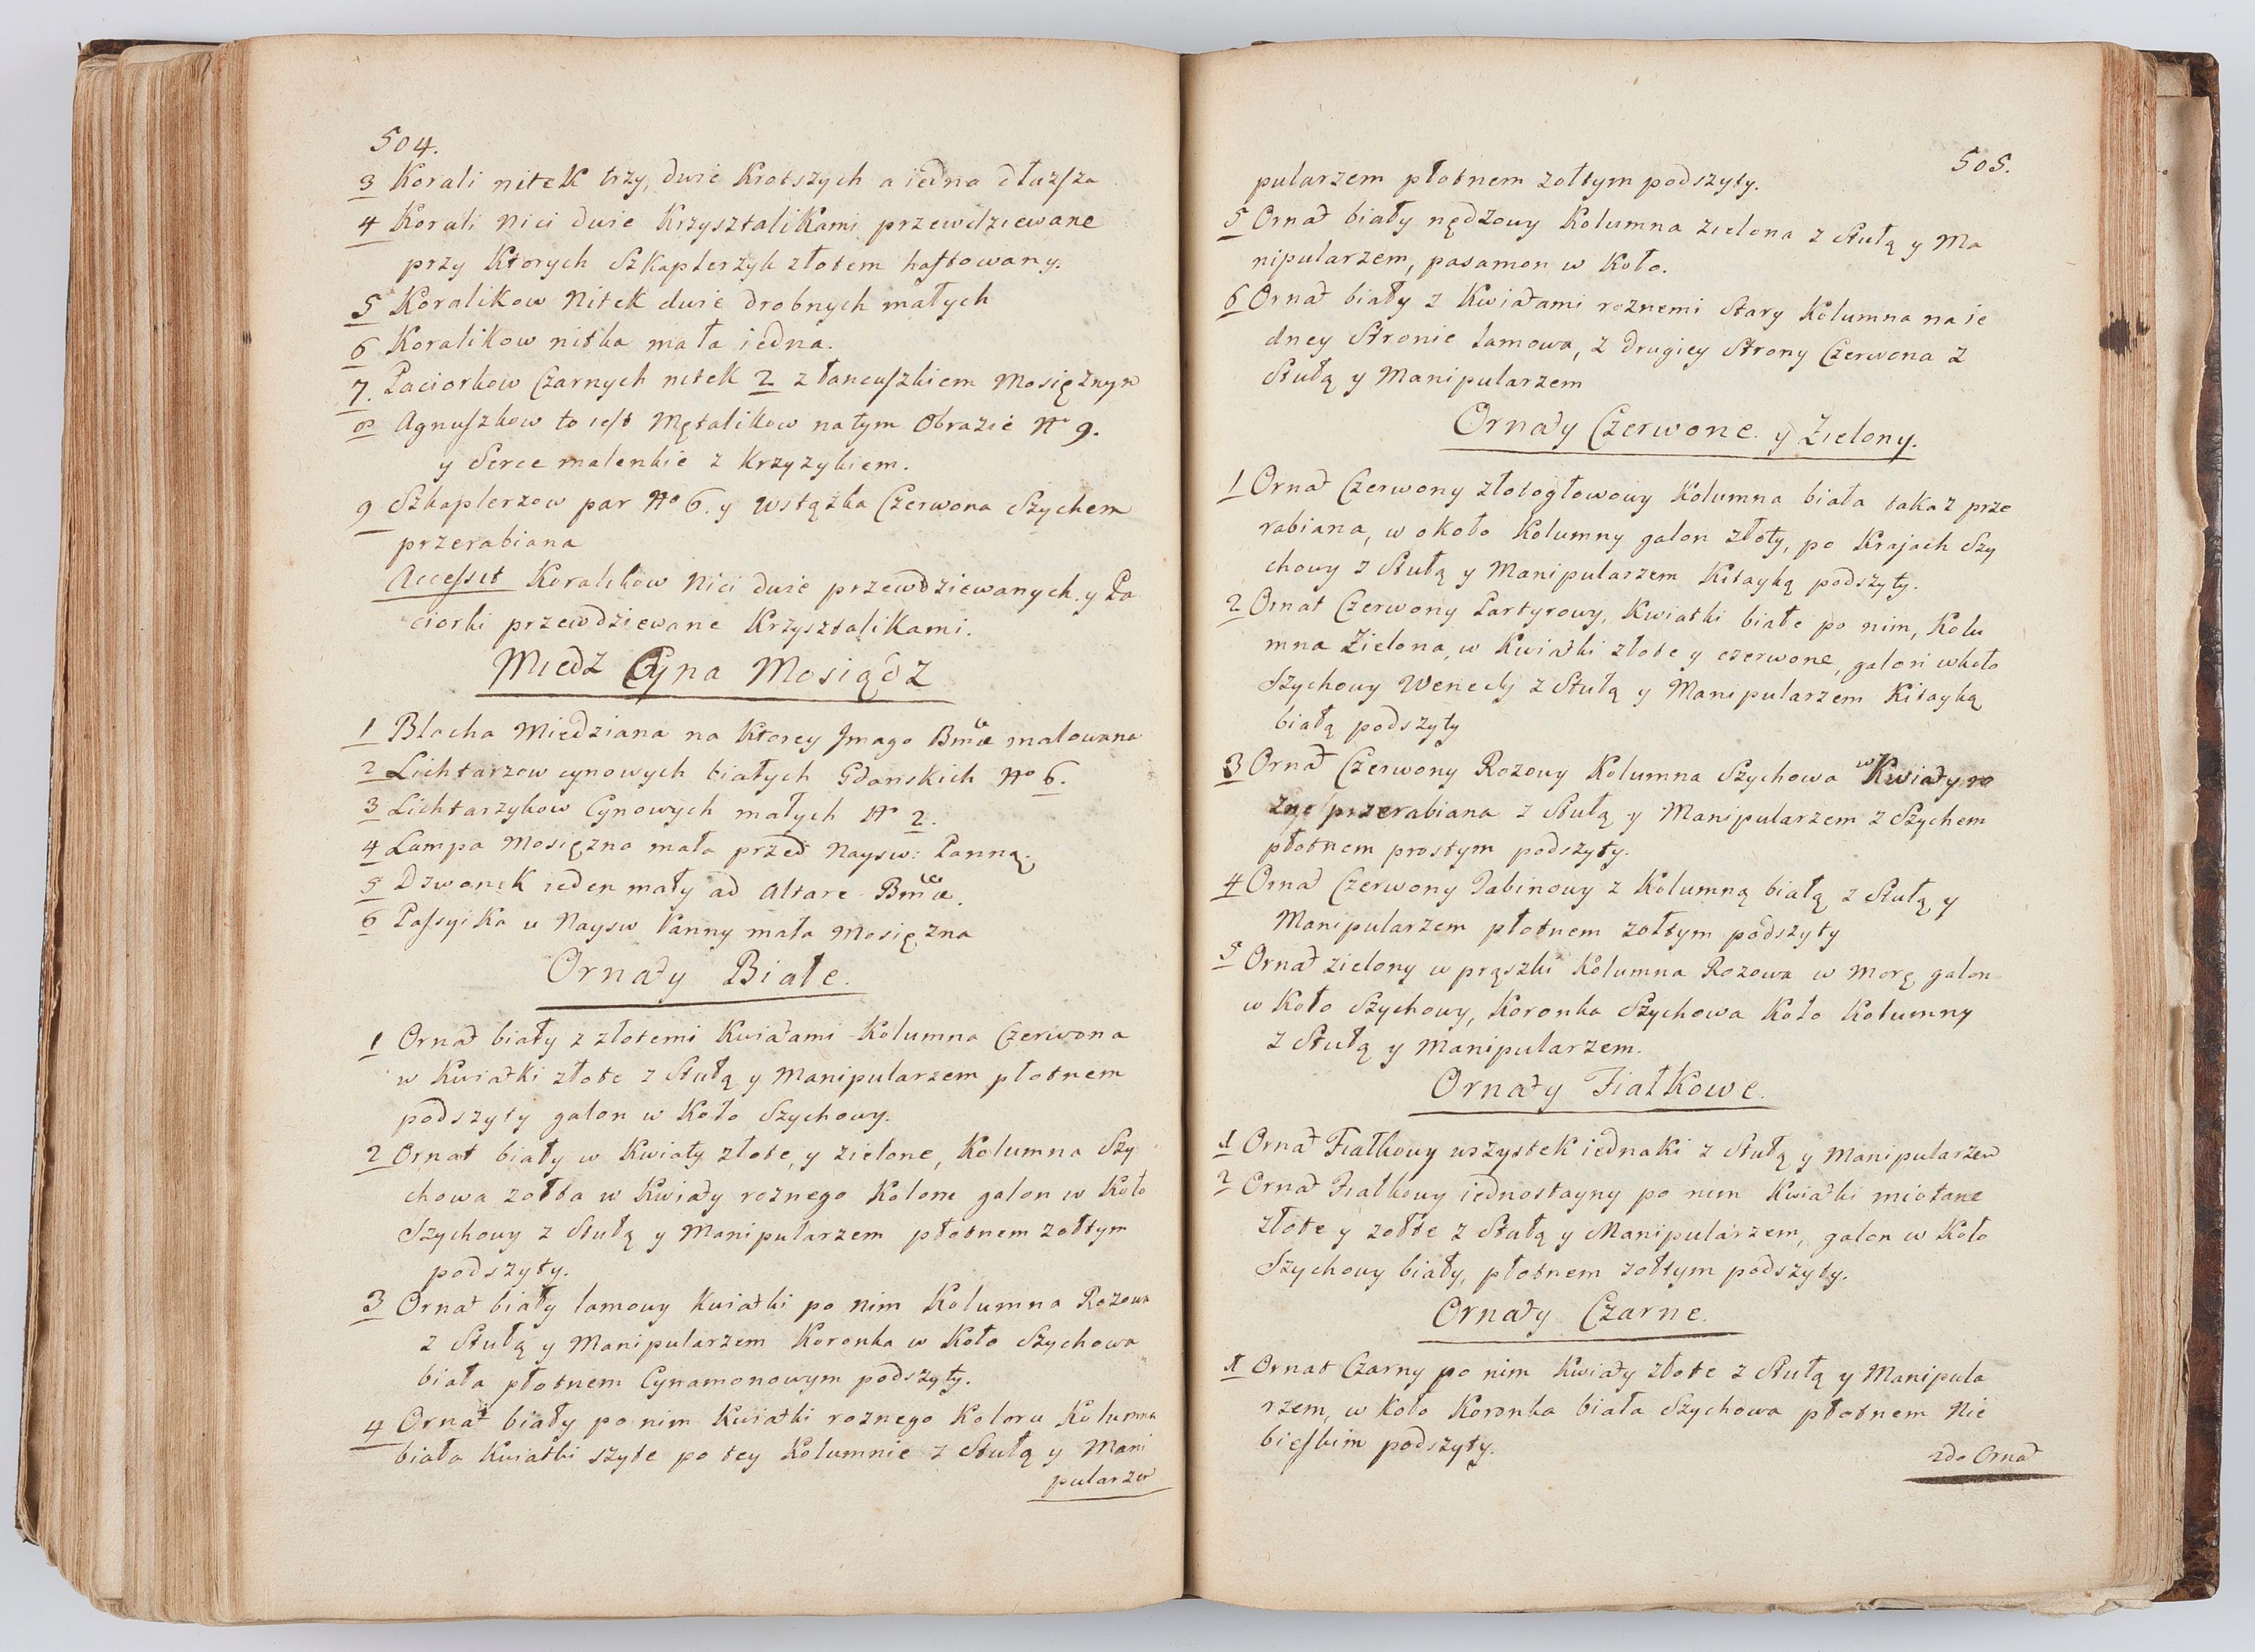 504.
3 Korali nitek trzy, dwie Krotszych a iedna dłuzſza
4 Korali Nici dwie Krzysztalikami przewdziewane
przy Ktorych Szkaplerzyk złotem haftowany.
5 Koralikow Nitek dwie drobnych małych
6 Koralikow nitka mała iedna.
7. Paciorkow Czarnych nitek 2 z łancuſzkiem Mosięznym
8 Agnuſzkow to ieſt Mętalikow na tym Obrazie No 9.
y Serce malenkie z Krzyzykiem.
9 Szkaplerzow par No 6. y Wstązka Czerwona Szychem
przerabiana
Acceſsit Koralikow Nici dwie przewdziewanych y Pa
ciorki przewdziewane Krzysztalikami.
Miedz Cyna Mosiądz
1 Blacha Miedziana na Ktorey Jmago Bmæ malowana
2 Lichtarzow cynowych białych Gdanskich No 6.
3 Lichtarzykow Cynowych małych No 2.
4 Lampa Mosięzna mała przed Nayśw: Panną.
5 Dzwonek ieden mały ad Altare Bmæ.
6 Paſsyika u Nayśw Panny mała Mosięzna
Ornaty Białe.
1 Ornat biały z złotemi Kwiatami Kolumna Czerwona
w Kwiatki złote z Stułą y Manipularzem płotnem
podszyty galon w Koło Szychowy.
2 Ornat biały w Kwiaty złote, y zielone, Kolumna Szy
chowa zołta w Kwiaty roznego Koloru galon w Koło
Szychowy z Stułą y Manipularzem płotnem zołtym
podszyty.
3 Ornat biały lamowy Kwiatki po nim Kolumna Rozowa
z Stułą y Manipularzem Koronka w Koło Szychowa
biała płotnem Cynamonowym podszyty.
4 Ornat biały po nim Kwiatki roznego Koloru Kolumna
biała Kwiatki szyte po tey Kolumnie z Stułą y Mani
pularzem
505.
pularzem płotnem zołtym podszyty.
5 Ornat biały nędzowy Kolumna zielona z Stułą y Ma
nipularzem, pasamon w Koło.
6 Ornat biały z Kwiatami roznemi Stary Kolumna na ie
dney Stronie lamowa, z drugiey Strony Czerwona z
Stułą y Manipularzem
Ornaty Czerwone y Zielony.
1 Ornat Czerwony złotogłowowy Kolumna biała takaz prze
rabiana, w około Kolumny galon złoty, po Krajach Szy
chowy z Stułą y Manipularzem Kitayką podszyty.
2 Ornat Czerwony Partyrowy, Kwiatki białe po nim, Kolu
mna Zielona, w Kwiatki złote y czerwone, galon wkoło
Szychowy Wenecky z Stułą y Manipularzem Kitayką
białą podszyty
3 Ornat Czerwony Rozowy Kolumna Szychowa w Kwiaty ro
zne przerabiana z Stułą y Manipularzem z Szychem
płotnem prostym podszyty.
4 Ornat Czerwony Tabinowy z Kolumną białą z Stułą y
Manipularzem płotnem zołtym podszyty
5 Ornat zielony w prąszki Kolumna Rozowa w Morę galon
w Koło Szychowy, Koronka Szychowa Koło Kolumny
z Stułą y Manipularzem.
Ornaty Fiałkowe.
1 Ornat Fiałkowy wszystek iednaki z Stułą y Manipularzem
2 Ornat Fiałkowy iednostayny po nim Kwiatki miotane
złote y zołte z Stułą y Manipularzem, galon w Koło
Szychowy biały, płotnem zołtym podszyty.
Ornaty Czarne.
1 Ornat Czarny po nim Kwiaty złote z Stułą y Manipula
rzem, w Koło Koronka biała Szychowa płotnem Nie
bieſkim podszyty.
2do Ornat